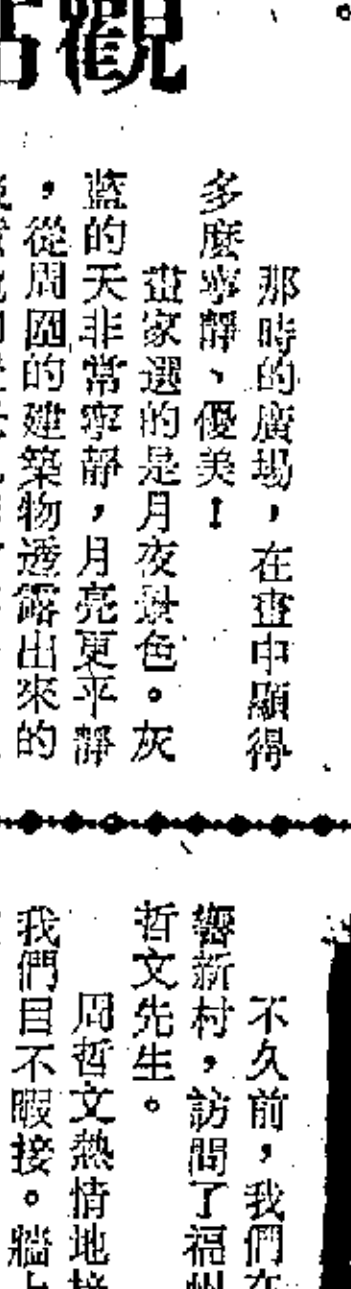 觀
那時的廣場，在畫中顯得
多麼寧靜、優美！
畫家選的是月夜景色。灰
藍的天非常寧靜，月亮更平靜
，從周圍的建築物透露出來的
不久前，我們在
新村，訪問了福州
哲文先生。
周哲文熱情地接
我們目不暇接。牆上